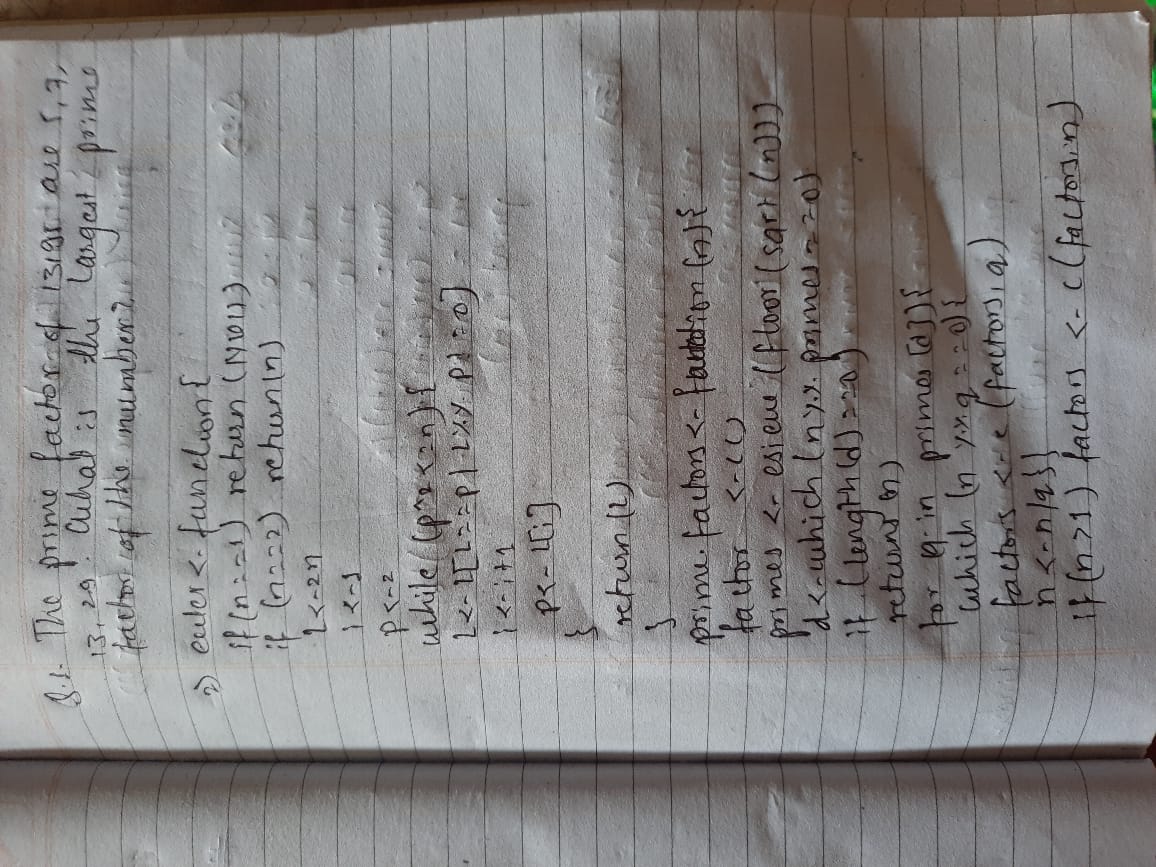 Q.1. The prime factor of 13195 are 5, 7,
13, 29. What is the largest prime
factor of the number?
→ euler <- function{
if (n==1) return (NULL)
if (n==2) return (n)
L <- 2n
i <- 1
p <- 2
while ((p^2 <= n) {
L <- L[L==p | L %% p! = 0]
i <- i+1
p <- L[i]
}
return (L)
}
prime.factors <- function (n) {
factor <- c()
primes <- esieve (floor (sqrt (n)))
d <- which (n %% primes == 0)
if (length (d) == 0)
return (n)
for q in primes [d]) {
which (n %% q == 0) {
factors <- c (factors, q)
n <- n/q }}
if (n > 1) factors <- c (factors, n)